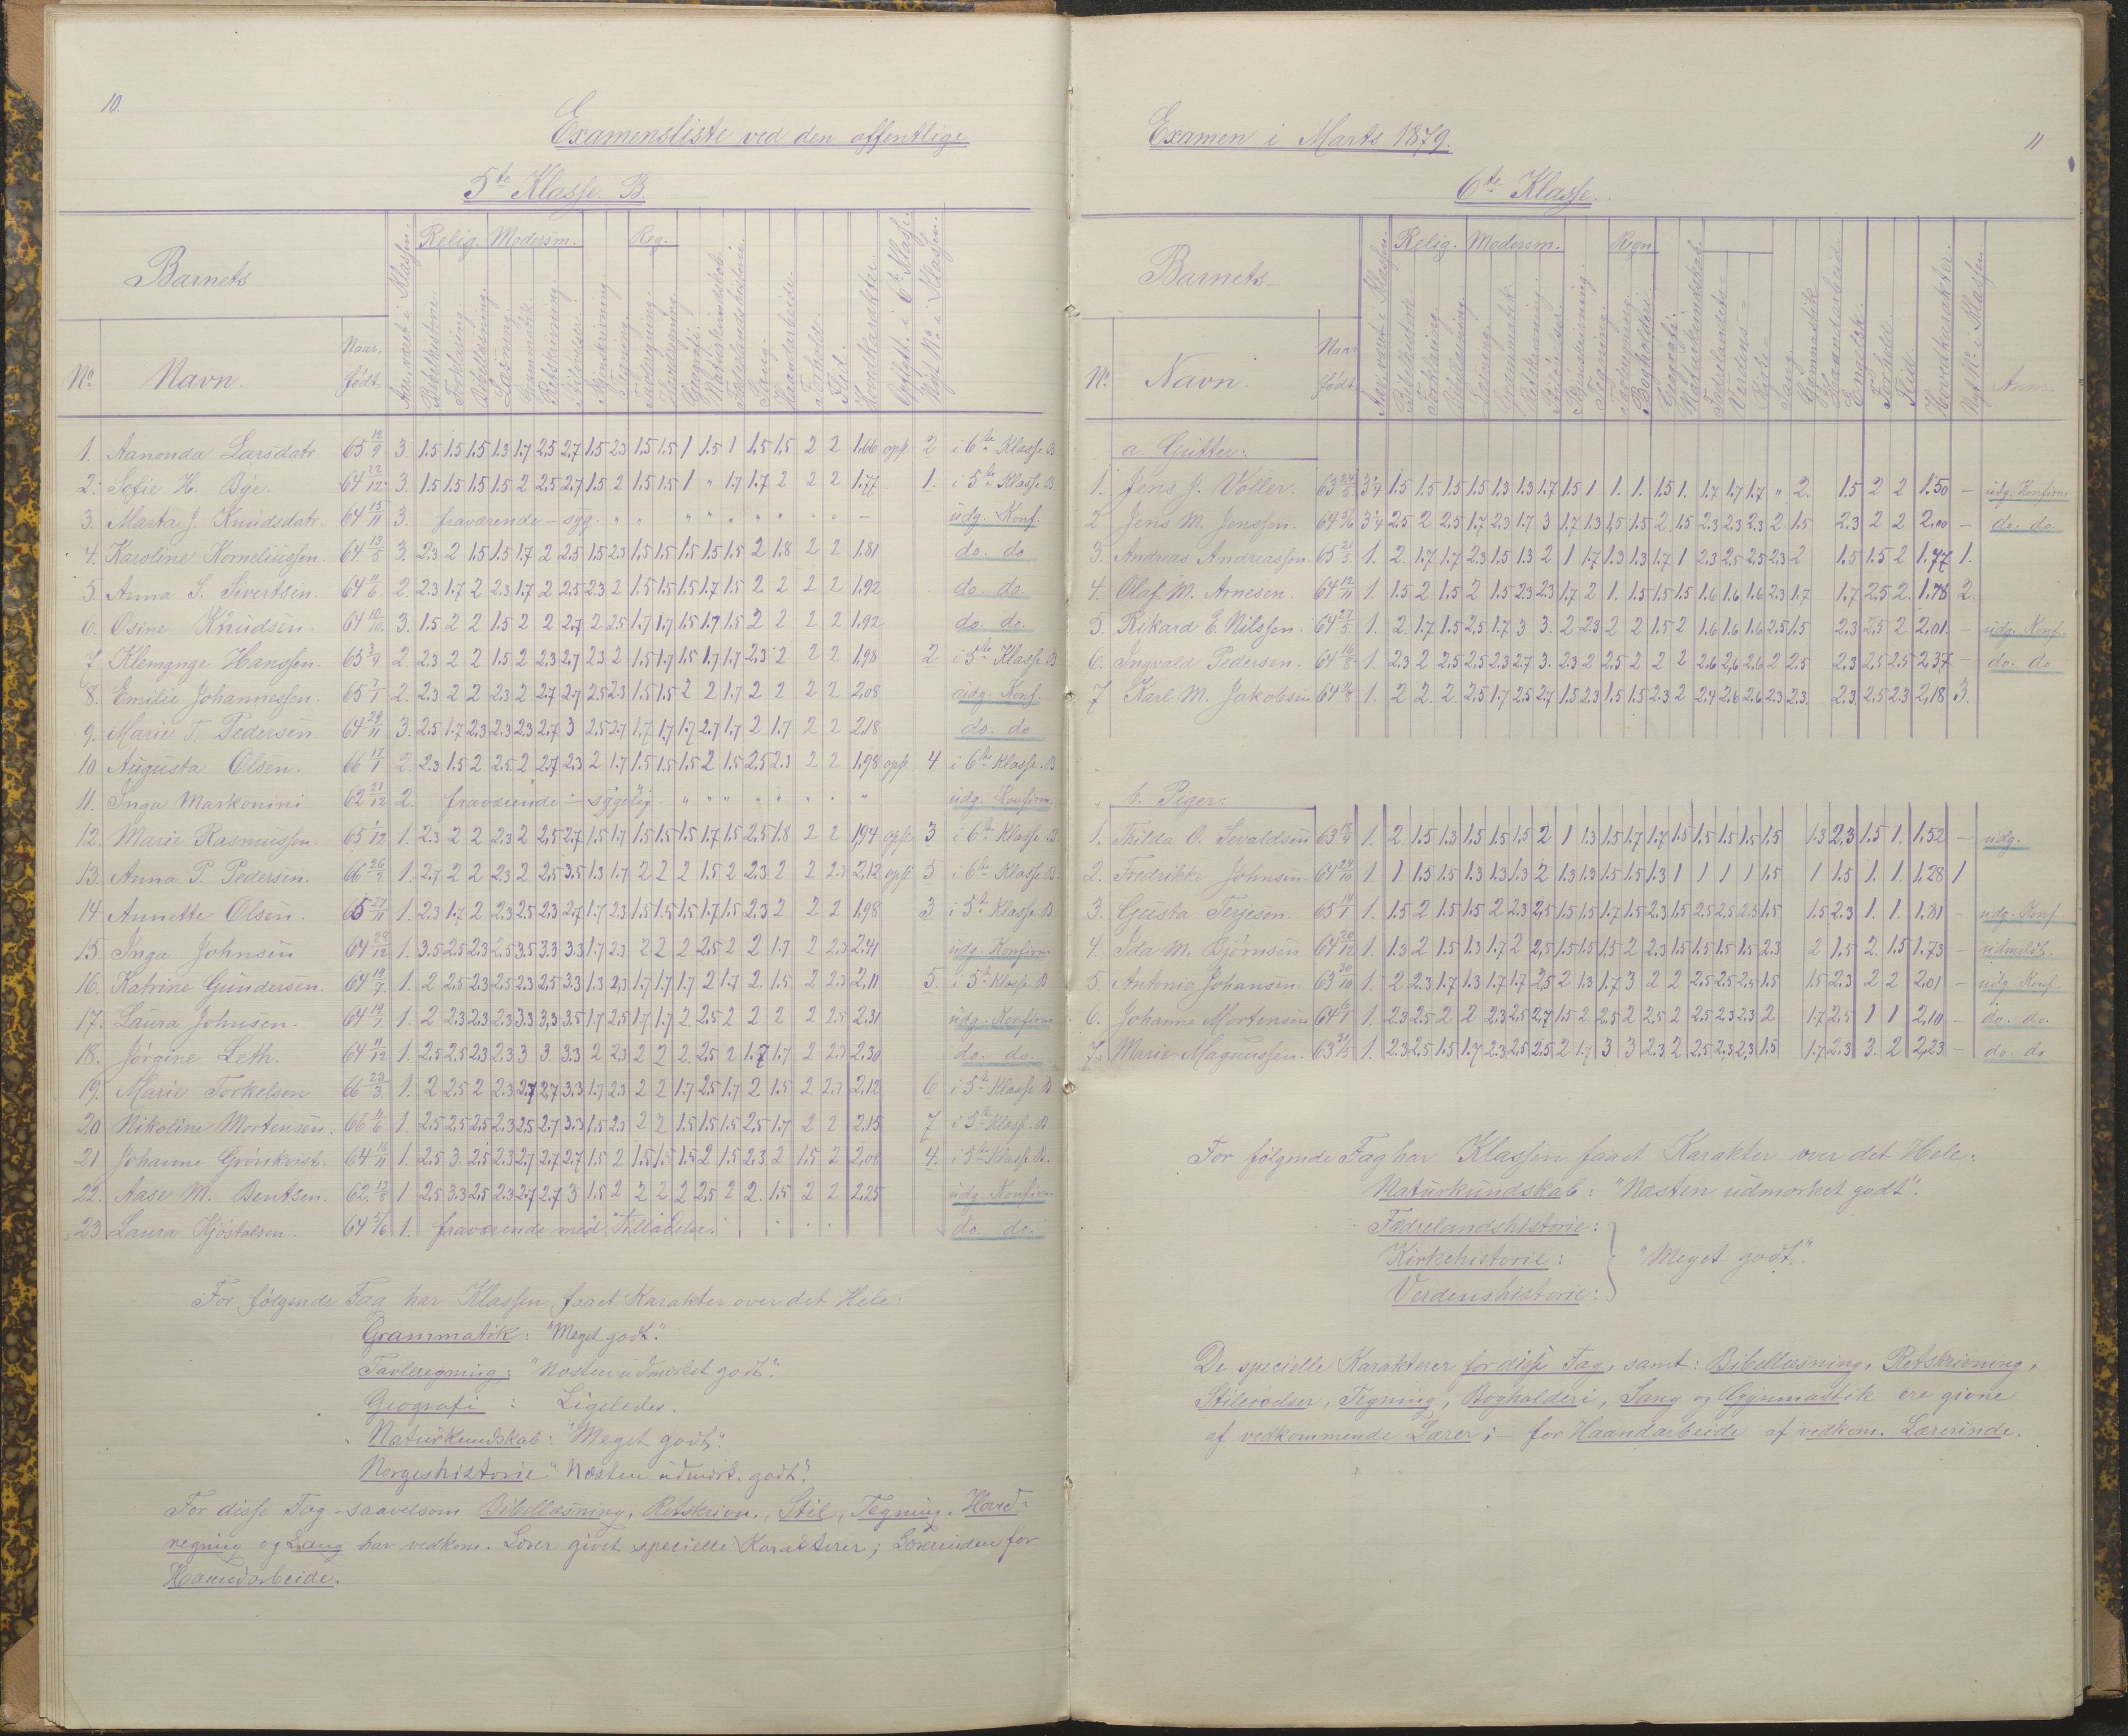 10.
Examensliste ved den offentlige
5te Klasse. B.
Barnets
Relig. Modersm. Reg.
No. Navn. Naar født
Aar været i Klassen. Bibelhistorie. Forklaring. Bibellæsning. Læsning. Grammatik. Retskrivning. Stiløvelser. Skjønskrivning Tegning. Tavleregning. Hovedregning. Geografi. Naturkundskab. Fædrelandshistorie. Sang. Haandarbeide. Forhold. Flid. Hovedkarakter. Opflytt. i 6te Klasse. Nyt No. i Klassen.
1. Aanonda Larsdatr 65 12/9 3. 1.5 1.5 1.5 1.3 1.7 2.5 2.7 1.5 2.3 1.5 1.5 1 1.5 1 1.5 1.5 2 2 1.66 opfl. 2 i 6te Klasse B
2. Sofie H. Bye. 64 22/12 3. 1.5 1.5 1.5 1.5 2 2.5 2.7 1.5 2 1.5 1.5 1 " 1.7 1.7 2 2 2 1.77 1. i 5te Klasse B.
3. Marta J. Knudsdatr. 64 15/11 3. fraværende - syg. " " " " " " " " " - udg. Konf.
4. Karoline Korneliussen. 64 13/5 3. 2.3 2 1.5 1.5 1.7 2 2.5 1.5 2.3 1.5 1.5 1.5 1.5 1.5 2 1.8 2 2 1.81 do. do
5. Anna S. Sivertsen. 64 11/6 2. 2.3 1.7 2 2.3 1.7 2 2.5 2.3 2 1.5 1.5 1.5 1.7 1.5 2 2 2 2 1.92 do. do.
6. Osine Knudsen 64 10/10 3. 1.5 2 2 1.5 2 2 2.7 2 2.5 1.7 1.7 1.5 1.7 1.5 2 2 2 2 1.92 do. do.
7 Klemgnge Hanssen. 65 3/4 2. 2.3 2 2 1.5 2 2.3 2.7 2.3 2 1.5 1.7 1.5 1.7 1.7 2.3 2 2 2 1.98 2 i 5te Klasse B
8. Emilie Johannessen. 65 7/1 2. 2.3 2 2 2.3 2 2.7 2.7 2.5 2.3 1.5 1.5 2 2 1.7 2 2 2 2 2.08 udg. Konf.
9. Marie T. Pedersen 64 29/11 3. 2.5 1.7 2.3 2.3 2.3 2.7 3 2.5 2.7 1.7 1.7 1.7 2.7 1.7 2 1.7 2 2 2.18 do. do
10 Augusta Olsen. 66 17/1 2. 2.3 1.5 2 2.5 2 2.7 2.3 2 1.7 1.5 1.5 1.5 2 1.5 2.5 2.3 2 2 1.98 opfl. 4 i 6te Klasse. B
11. Inga Markonini 62 21/12 2. fraværende - sygelig. " " " " " " " udg. Konfirm.
12. Marie Rasmussen. 65 1/12 1. 2.3 2 2 2.3 2 2.5 2.7 1.5 1.7 1.5 1.5 1.5 1.7 1.5 2.5 1.8 2 2 1.94 opfl. 3 i 6te Klasse. B
13. Anna P. Pedersen. 66 26/2 1. 2.7 2 2 2.3 2 2.5 3.5 1.3 1.7 2 2 2 1.5 2 2.3 2 2 2.3 2.12 opfl 5 i 6te Klasse B.
14. Annette Olsen. 65 27/11 1. 2.3 1.7 2 2.3 2.5 2.3 2.7 1.7 2.3 1.5 1.5 1.5 1.7 1.5 2.3 2 2 2 1.98 3 i 5te Klasse. B
15. Inga Johnsen 64 28/12 1. 3.5 2.5 2.3 2.5 3.5 3.3 3.3 1.7 2.3 2 2 2 2.5 2 2 1.7 2 2.3 2.41 udg. Konfirm
16. Katrine Gundersen. 64 19/7 1. 2 2.5 2.3 2.5 2.3 2.5 3.3 1.3 2.3 1.7 1.7 1.7 2 1.7 2. 1.5 2 2.3 2.11 5. i 5te Klasse B
17. Laura Johnsen. 64 19/7 1. 2 2.3 2.3 2.3 3.3 3.3 3.5 1.7 2.5 1.7 1.7 2 2.5 2 2 2 2 2.5 2.31 udg. Konfirm
18. Jørgine Leth. 64 11/12 1. 2.5 2.5 2.3 2.3 3 3. 3.3 2 2.3 2 2 2. 2.5 2 1.7 1.7 2 2.3 2.30 do. do.
19. Marie Torkelsen 66 23/3 1. 2 2.5 2 2.3 2.7 2.7 3.3 1.7 2.3 2 2 1.7 2.5 1.7 2 1.5 2 2.3 2.12 6 i 5te Klasse B
20 Nikoline Mortensen. 66 11/6 1. 2.5 2.5 2.5 2.3 2.5 2.7 3.3 1.5 2.3 2 2 1.5 1.5 1.5 2.5 1.7 2 2 2.15 7 i 5te Klasse. B
21 Johanne Grönkvist. 64 16/11 1. 2.5 3. 2.5 2.3 2.7 2.7 2.7 1.5 2 1.5 1.5 1.5 2 1.5 2.3 2 1.5 2 2.08 4. i 5te Klasse B.
22. Aase M. Bentsen. 62. 13/8 1 2.5 3.3 2.5 2.3 2.7 2.7 3 1.5 2 2 2 2 2.5 2 2. 1.5 2 2 2.25 udg. Konfirm
23 Laura Kjöstolsen. 64 5/6 1. fraværende med Tilladelse. do do.
For følgende Fag har Klassen faaet Karakter over det Hele:
Grammatik: "Meget godt."
Tavleregning: "Næsten udmærket godt."
Geografi : Ligeledes.
Naturkundskab: "Meget godt."
Norgeshistorie "Næsten udmærk. godt."
For disse Fag saavelsom Bibellæsning, Retskrivn., Stil, Tegning, Hoved-
regning og Sang har vedkom. Lærer givet specielle Karakterer; Lærerinden for
Haandarbeide.
Examen i Marts 1879.
11
6te Klasse.
Barnets
Relig. Modersm. Regn
No. Navn. Naar født.
Aar været i Klassen. Bibelhistorie. Forklaring Bibellæsning. Læsning. Grammatik. Retskrivning. Stiløvelser. Skjønskrivning. Tegning. Tavleregning. Bogholderi. Geografi. Naturkundskab. Fædrelandets- Verdens- Kirke- Sang. Gymnastik Haandarbeide. Engelsk. Forhold. Flid. Hovedkarakter. Nyt No. i Klassen.
a. Gutter:
1. Jens J. Voller. 63 24/5 3¼ 1.5 1.5 1.5 1.5 1.3 1.3 1.7 1.5 1 1. 1. 1.5 1. 1.7 1.7 1.7 " 2. 1.5 2 2 1.50 - udg. Konfirm
2 Jens M. Jenssen. 64 9/6 3¼ 2.5 2 2.5 1.7 2.3 1.7 3 1.7 1.3 1.5 1.5 2 1.5 2.3 2.3 2.3 2 1.5 2.3 2 2 2.00 - do. do.
3. Andreas Andreassen. 65 21/5 1. 2. 1.7 1.7 2.3 1.5 1.3 2 1 1.7 1.3 1.3 1.7 1 2.3 2.5 2.5 2.3 2 1.5 1.5 2 1.77 1.
4. Olaf M. Arnesen. 64 12/11 1. 1.5 2 1.5 2 1.5 2.3 2.3 1.7 2 1. 1.5 1.5 1.5 1.6 1.6 1.6 2.3 1.7 1.7 2.5 2. 1.78 2.
5. Rikard E. Nilssen. 64 27/5 1. 2. 1.7 1.5 2.5 1.7 3 3. 2 2.3 2 2 1.5 2 1.6 1.6 1.6 2.5 1.5 2.3 2.5 2 2.01. - udg. Konf.
6. Ingvald Pedersen. 64 16/8 1. 2.3 2 2.5 2.5 2.3 2.7 3. 2.3 2 2.5 2 2 2 2.6 2.6 2.6 2 2.5 2.3 2.5 2.5 2.37 - do. do
7 Karl M. Jakobsen 64 11/8 1. 2 2. 2. 2.5 1.7 2.5 2.7 1.5 2.3 1.5 1.5 2.3 2 2.4 2.6 2.6 2.3 2.3. 2.3 2.5 2.3 2.18 3.
b. Piger:
1. Thilda O. Sevaldsen 63 18/4 1. 2 1.5 1.3 1.5 1.5 1.5 2 1 1.3 1.5 1.7 1.7 1.5 1.5 1.5 1.5 1.5 1.3 2.3 1.5 1. 1.52 - udg.
2. Fredrikke Johnsen. 64 24/10 1. 1 1.5 1.5 1.3 1.3 1.3 2 1.3 1.3 1.5 1.5 1.3 1 1 1 1 1.5 1 1.5 1. 1. 1.28 1
3. Gusta Terjesen. 65 14/1 1. 1.5 2 1.5 1.5 2 2.3 2.5 1.5 1.5 1.7 1.5 2.3 1.5 2.5 2.5 2.5 1.5 1.5 2.3 1. 1. 1.81 - udg. Konf
4. Ida M. Bjørnsen 64 20/12 1. 1.3 2 1.5 1.3 1.7 2 2.5 1.5 1.5 1.5 2 2.3 1.5 1.5 1.5 1.5 2.3 2 1.5 2. 1.5 1.73 - udmeldt.
5. Antonie Johansen. 63 30/10 1. 2 2.3 1.7 1.3 1.7 1.7 2.5 2 1.3 1.7 3 2 2 2.5 2.5 2.5 1.5 1.5 2.3 2 2 2.01 - udg. Konf.
6. Johanne Mortensen 64 6/1 1. 2.3 2.5 2 2 2.3 2.5 2.7 1.5 2. 2.5 2 2.5 2 2.5 2.3 2.3 2 1.7 2.5 1 1 2.10 - do. do.
7. Marie Magnussen. 63 31/5 1. 2.3 2.5 1.5 1.7 2.3 2.5 2.5 2 1.7 3 3 2.3 2 2.5 2.3 2.3 1.5 1.7 2.3 3. 2 2.23 - do. do
For følgende Fag har Klassen faaet Karakter over det Hele:
Naturkundskab: "Næsten udmærket godt".
Fædrelandshistorie:
Kirkehistorie: "Meget godt."
Verdenshistorie:
De specielle Karakterer for disse Fag, samt: Bibellæsning, Retskrivning,
Stiløvelser, Tegning, Bogholderi, Sang og Gymnastik ere givne
af vedkommende Lærer; - for Haandarbeide af vedkom. Lærerinde.